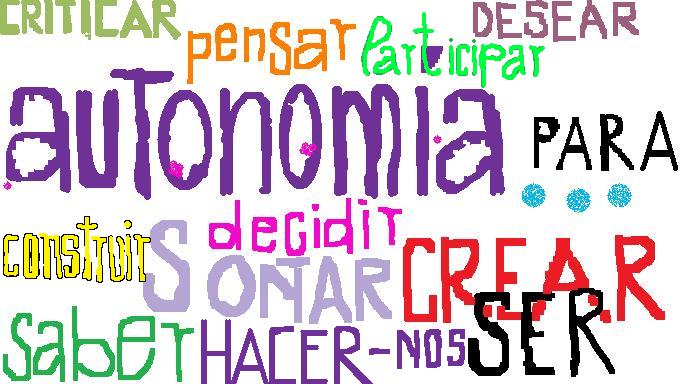 CRITICAR pensar Participar DESEAR
autonomía PARA
...
construir SOÑAR decidir CREAR
saber HACER-NOS SER